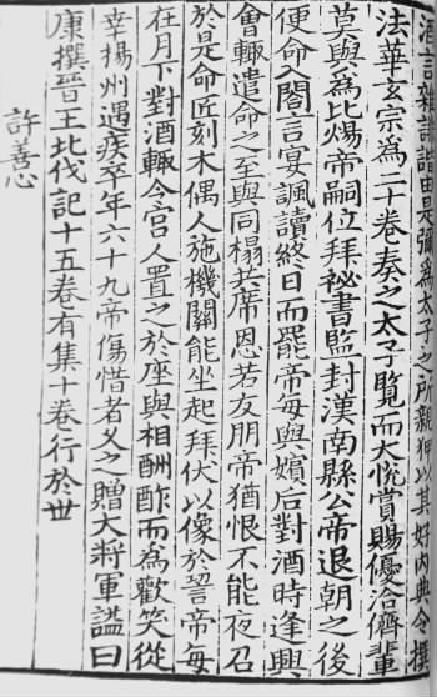 酒言雜說諧由是彌爲太子之所親狎以其好內典令撰
法華玄宗爲二十卷奏之太子覽而大悅賞賜優洽儕輩
莫與爲比煬帝嗣位拜祕書監封漢南縣公帝退朝之後
便命入閤言宴諷讀終日而罷帝每與嬪后對酒時逢興
會輒遣命之至與同榻共席恩若友朋帝猶恨不能夜召
於是命匠刻木偶人施機關能坐起拜伏以像於䛒帝每
在月下對酒輒令宮人置之於座與相酬酢而爲歡笑從
幸揚州遇疾卒年六十九帝傷惜者乆之贈大將軍謚曰
康撰晉王北伐記十五卷有集十卷行於世
許善心